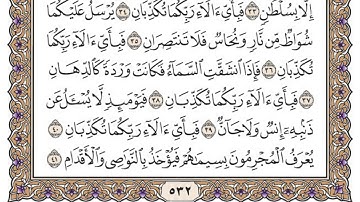 إِلَّا بِسُلْطَٰنٍ ٣٣ فَبِأَىِّ ءَالَآءِ رَبِّكُمَا تُكَذِّبَانِ ٣٤ يُرْسَلُ عَلَيْكُمَا
شُوَاظٌ مِّن نَّارٍ وَنُحَاسٌ فَلَا تَنتَصِرَانِ ٣٥ فَبِأَىِّ ءَالَآءِ رَبِّكُمَا
تُكَذِّبَانِ ٣٦ فَإِذَا ٱنشَقَّتِ ٱلسَّمَآءُ فَكَانَتْ وَرْدَةً كَٱلدِّهَانِ
٣٧ فَبِأَىِّ ءَالَآءِ رَبِّكُمَا تُكَذِّبَانِ ٣٨ فَيَوْمَئِذٍ لَّا يُسْـَٔلُ عَن
ذَنۢبِهِۦٓ إِنسٌ وَلَا جَآنٌّ ٣٩ فَبِأَىِّ ءَالَآءِ رَبِّكُمَا تُكَذِّبَانِ ٤٠
يُعْرَفُ ٱلْمُجْرِمُونَ بِسِيمَٰهُمْ فَيُؤْخَذُ بِٱلنَّوَٰصِى وَٱلْأَقْدَامِ ٤١
٥٣٢